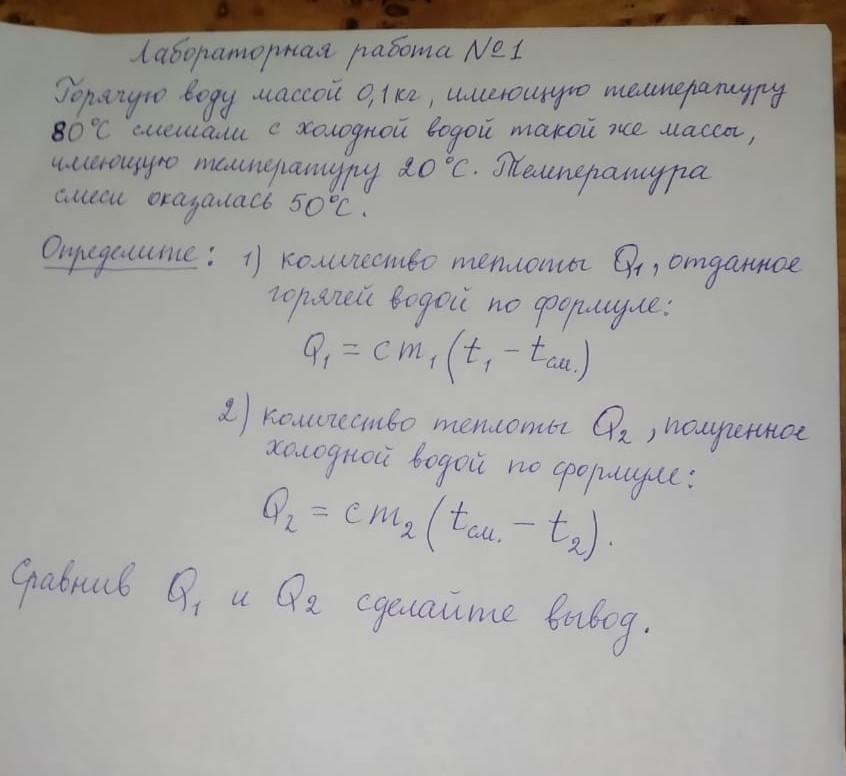 Лабораторная работа №1
Горячую воду массой 0,1 кг, имеющую температуру
80°С смешали с холодной водой такой же массы,
имеющую температуру 20°С. Температура
смеси оказалась 50°С.
Определите: 1) количество теплоты Q₁, отданное
горячей водой по формуле:
Q₁ = cm₁(t₁ - tсм.)
2) количество теплоты Q₂, полученное
холодной водой по формуле:
Q₂ = cm₂(tсм. - t₂).
Сравнив Q₁ и Q₂ сделайте вывод.